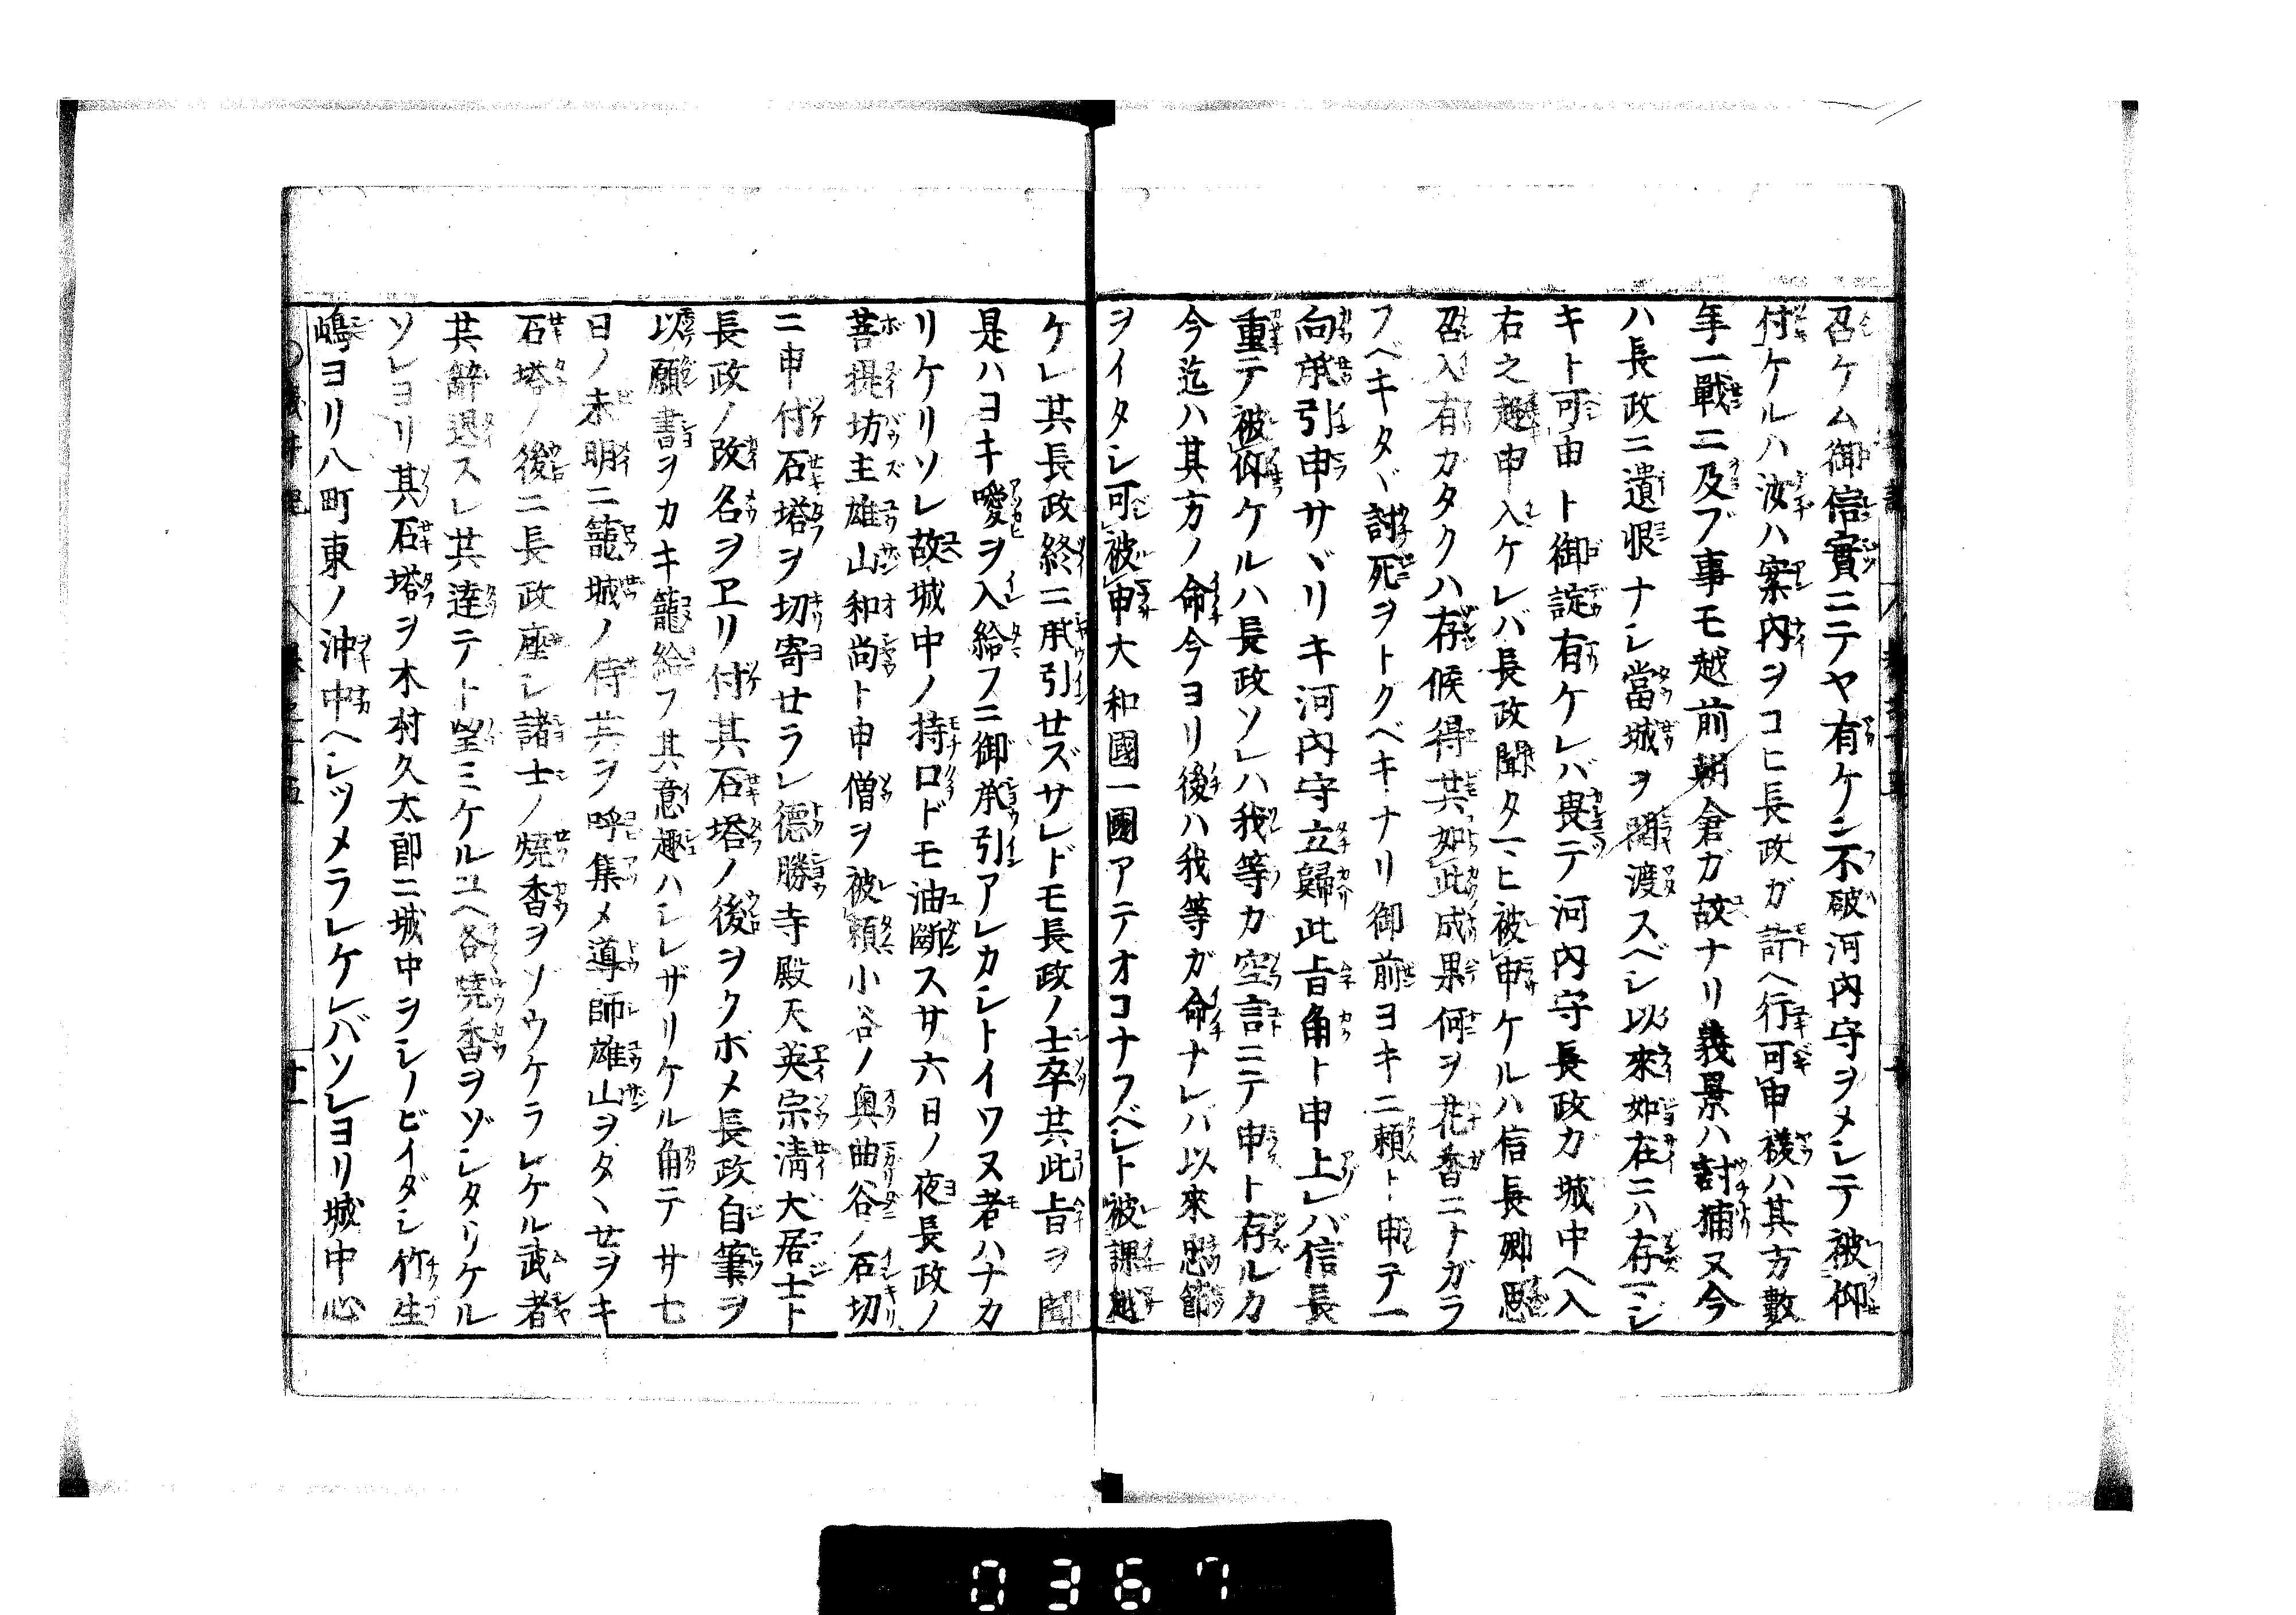 召ケム御信實ニテヤ有ケン不破河内守ヲメシテ被仰
付ケルハ汝ハ案内ヲコヒ長政ガ許ヘ行可申樣ハ其方數
年一戰ニ及ブ事モ越前朝倉ガ故ナリ義景ハ討捕ヌ今
ハ長政ニ遺恨ナシ當城ヲ開渡スベシ以來如在ニハ存マシ
キト可申ト御諚有ケレバ畏テ河内守長政ガ城中ヘ入
右之趣申入ケレバ長政聞タマヒ被申ケルハ信長卿思
召入有ガタクハ存候得共如此成果何ヲ花香ニナガラ
フベキタヾ討死ヲトクベキナリ御前ヨキニ頼ト申テ一
向承引申サヾリキ河内守立歸此旨角ト申上レバ信長
重テ被仰ケルハ長政ソレハ我等カ空言ニテ申ト存ルカ
今迄ハ其方ノ命今ヨリ後ハ我等ガ命ナレバ以來忠節
ヲイタシ可被申大和國一圓アテオコナフベシト被課越
ケレ共長政終ニ承引セズサレドモ長政ノ士卒共此旨ヲ聞
是ハヨキ曖ヲ入給フニ御承引アレカシトイワヌ者ハナカ
リケリソレ故城中ノ持口ドモ油斷スサ六日ノ夜長政ノ
菩提坊主雄山和尚ト申僧ヲ被頼小谷ノ奥曲谷ノ石切
ニ申付石塔ヲ切寄サラレ德勝寺殿天英宗清大居士ト
長政ノ改名ヲヱリ付其石塔ノ後ヲクボメ長政自筆ヲ
以願書ヲカキ籠給フ其意趣ハシレザリケル角テ廿七
日ノ未明ニ籠城ノ侍共ヲ呼集メ導師雄山ヲタヽセヲキ
石塔ノ後ニ長政座シ諸士ノ燒香ヲソウケラレケル武者
共辭退スレ共達テト望ミケルユヘ各燒香ヲゾシタリケル
ソレヨリ其石塔ヲ木村久太郎ニ城中ヲシノビイダシ竹生
嶋ヨリ八町東ノ沖中ヘシツメラレケレバソレヨリ城中心
廿一
0367